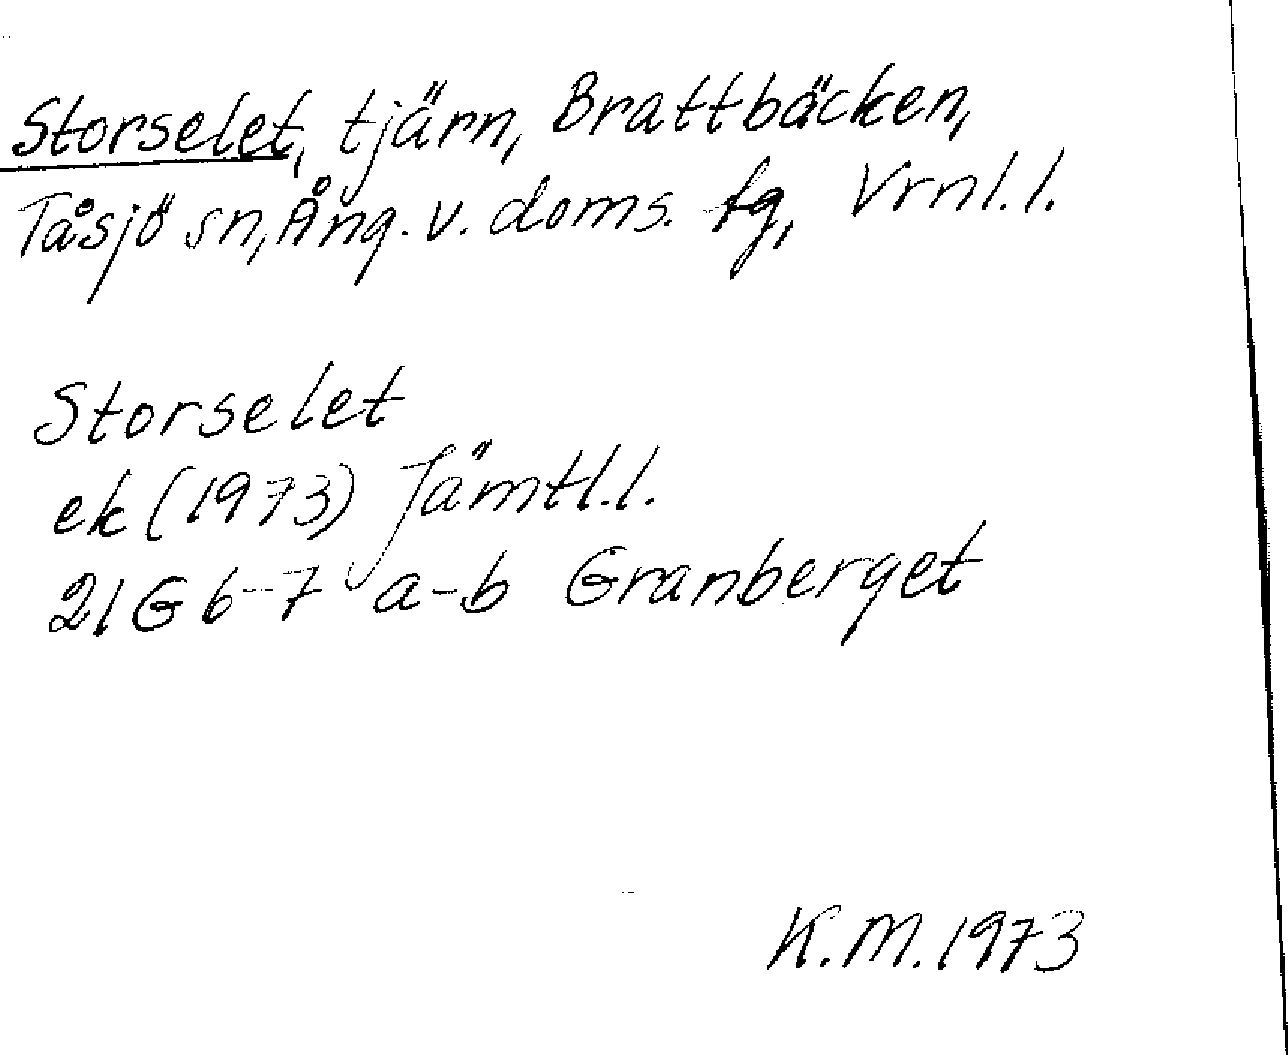 Storselet, tjärn, Brattbäcken,
Tåsjö sn, Ång. v. doms. fg, Vrnl. l.
Storselet
ek (1973) Jämtl. l.
21 G 6-7 a-b Granberget
K. M. 1973